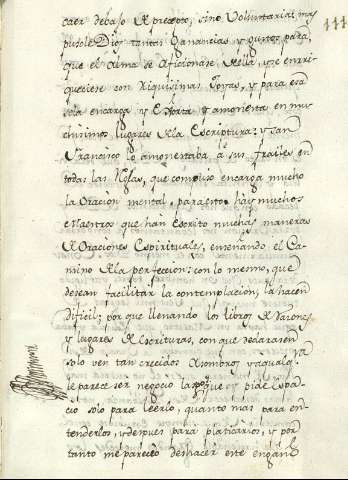 111
caer debajo de precepto, sino Voluntaria: mas
pusole Dios tantas Ganancias, y gustos para,
que el Alma se aficionase della, y se enrri-
queciese con Riquisimas Joyas, y para esa
sola encarga, y exorta, y amonesta en mu-
chisimos lugares de la Escriptura: y San
Francisco lo amonestaba a sus frailes en
todas las Reglas, que compuso encarga mucho
la Oracion mental, para esto hay muchos
Maestros que han Escrito muchas maneras
de Oraciones Espirituales, enseñando el Ca-
mino de la perfeccion: con lo mesmo, que
desean facilitar la contemplacion, la hacen
dificil; por que llenando los libros de Varones,
y lugares de Escrituras, con que declararse
solo ven tan crecidos asombros, y a qualq.ra
le parece ser negocio largo, que y pide Espa-
cio solo para leerlo, quanto mas para en-
tenderlos, y despues para platicarlos, y por
tanto me parecio deshacer este engaño